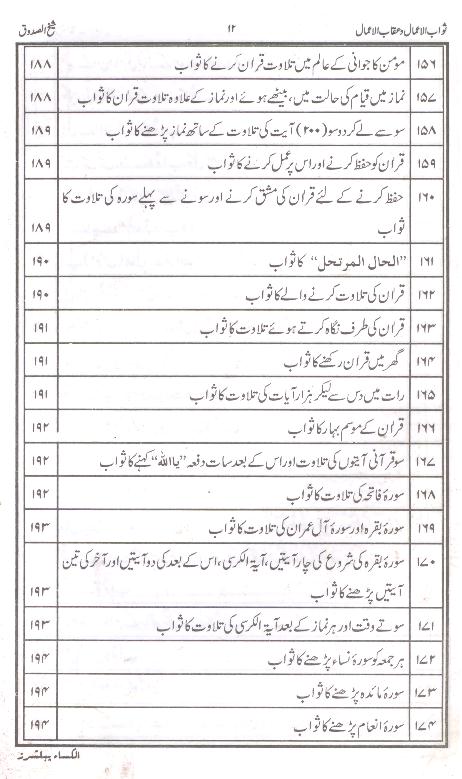 ثواب الاعمال و عقاب الاعمال ۱۲ شیخ الصدوق
۱۵۶ مؤمن کا جوانی کے عالم میں تلاوت قرآن کرنے کا ثواب ۱۸۸
۱۵۷ نماز میں قیام کی حالت میں، بیٹھے ہوئے اور نماز کے علاوہ تلاوت قرآن کا ثواب ۱۸۸
۱۵۸ سو سے لے کر دو سو (۲۰۰) آیت کی تلاوت کے ساتھ نماز پڑھنے کا ثواب ۱۸۹
۱۵۹ قرآن کو حفظ کرنے اور اس پر عمل کرنے کا ثواب ۱۸۹
۱۶۰ حفظ کرنے کے لئے قرآن کی مشق کرنے اور سونے سے پہلے سورہ کی تلاوت کا
ثواب ۱۸۹
۱۶۱ "الحال المرتحل" کا ثواب ۱۹۰
۱۶۲ قرآن کی تلاوت کرنے والے کا ثواب ۱۹۰
۱۶۳ قرآن کی طرف نگاہ کرتے ہوئے تلاوت کا ثواب ۱۹۱
۱۶۴ گھر میں قرآن رکھنے کا ثواب ۱۹۱
۱۶۵ رات میں دس سے لیکر ہزار آیات کی تلاوت کا ثواب ۱۹۱
۱۶۶ قرآن کے موسم بہار کا ثواب ۱۹۲
۱۶۷ سو قرآنی آیتوں کی تلاوت اور اس کے بعد سات دفعہ "یا اللہ" کہنے کا ثواب ۱۹۲
۱۶۸ سورۂ فاتحہ کی تلاوت کا ثواب ۱۹۲
۱۶۹ سورۂ بقرہ اور سورۂ آل عمران کی تلاوت کا ثواب ۱۹۳
۱۷۰ سورۂ بقرہ کی شروع کی چار آیتیں، آیۃ الکرسی، اس کے بعد کی دو آیتیں اور آخر کی تین
آیتیں پڑھنے کا ثواب ۱۹۳
۱۷۱ سوتے وقت اور ہر نماز کے بعد آیۃ الکرسی کی تلاوت کا ثواب ۱۹۳
۱۷۲ ہر جمعہ کو سورۂ نساء پڑھنے کا ثواب ۱۹۴
۱۷۳ سورۂ مائدہ پڑھنے کا ثواب ۱۹۴
۱۷۴ سورۂ انعام پڑھنے کا ثواب ۱۹۴
الکساء پبلشرز